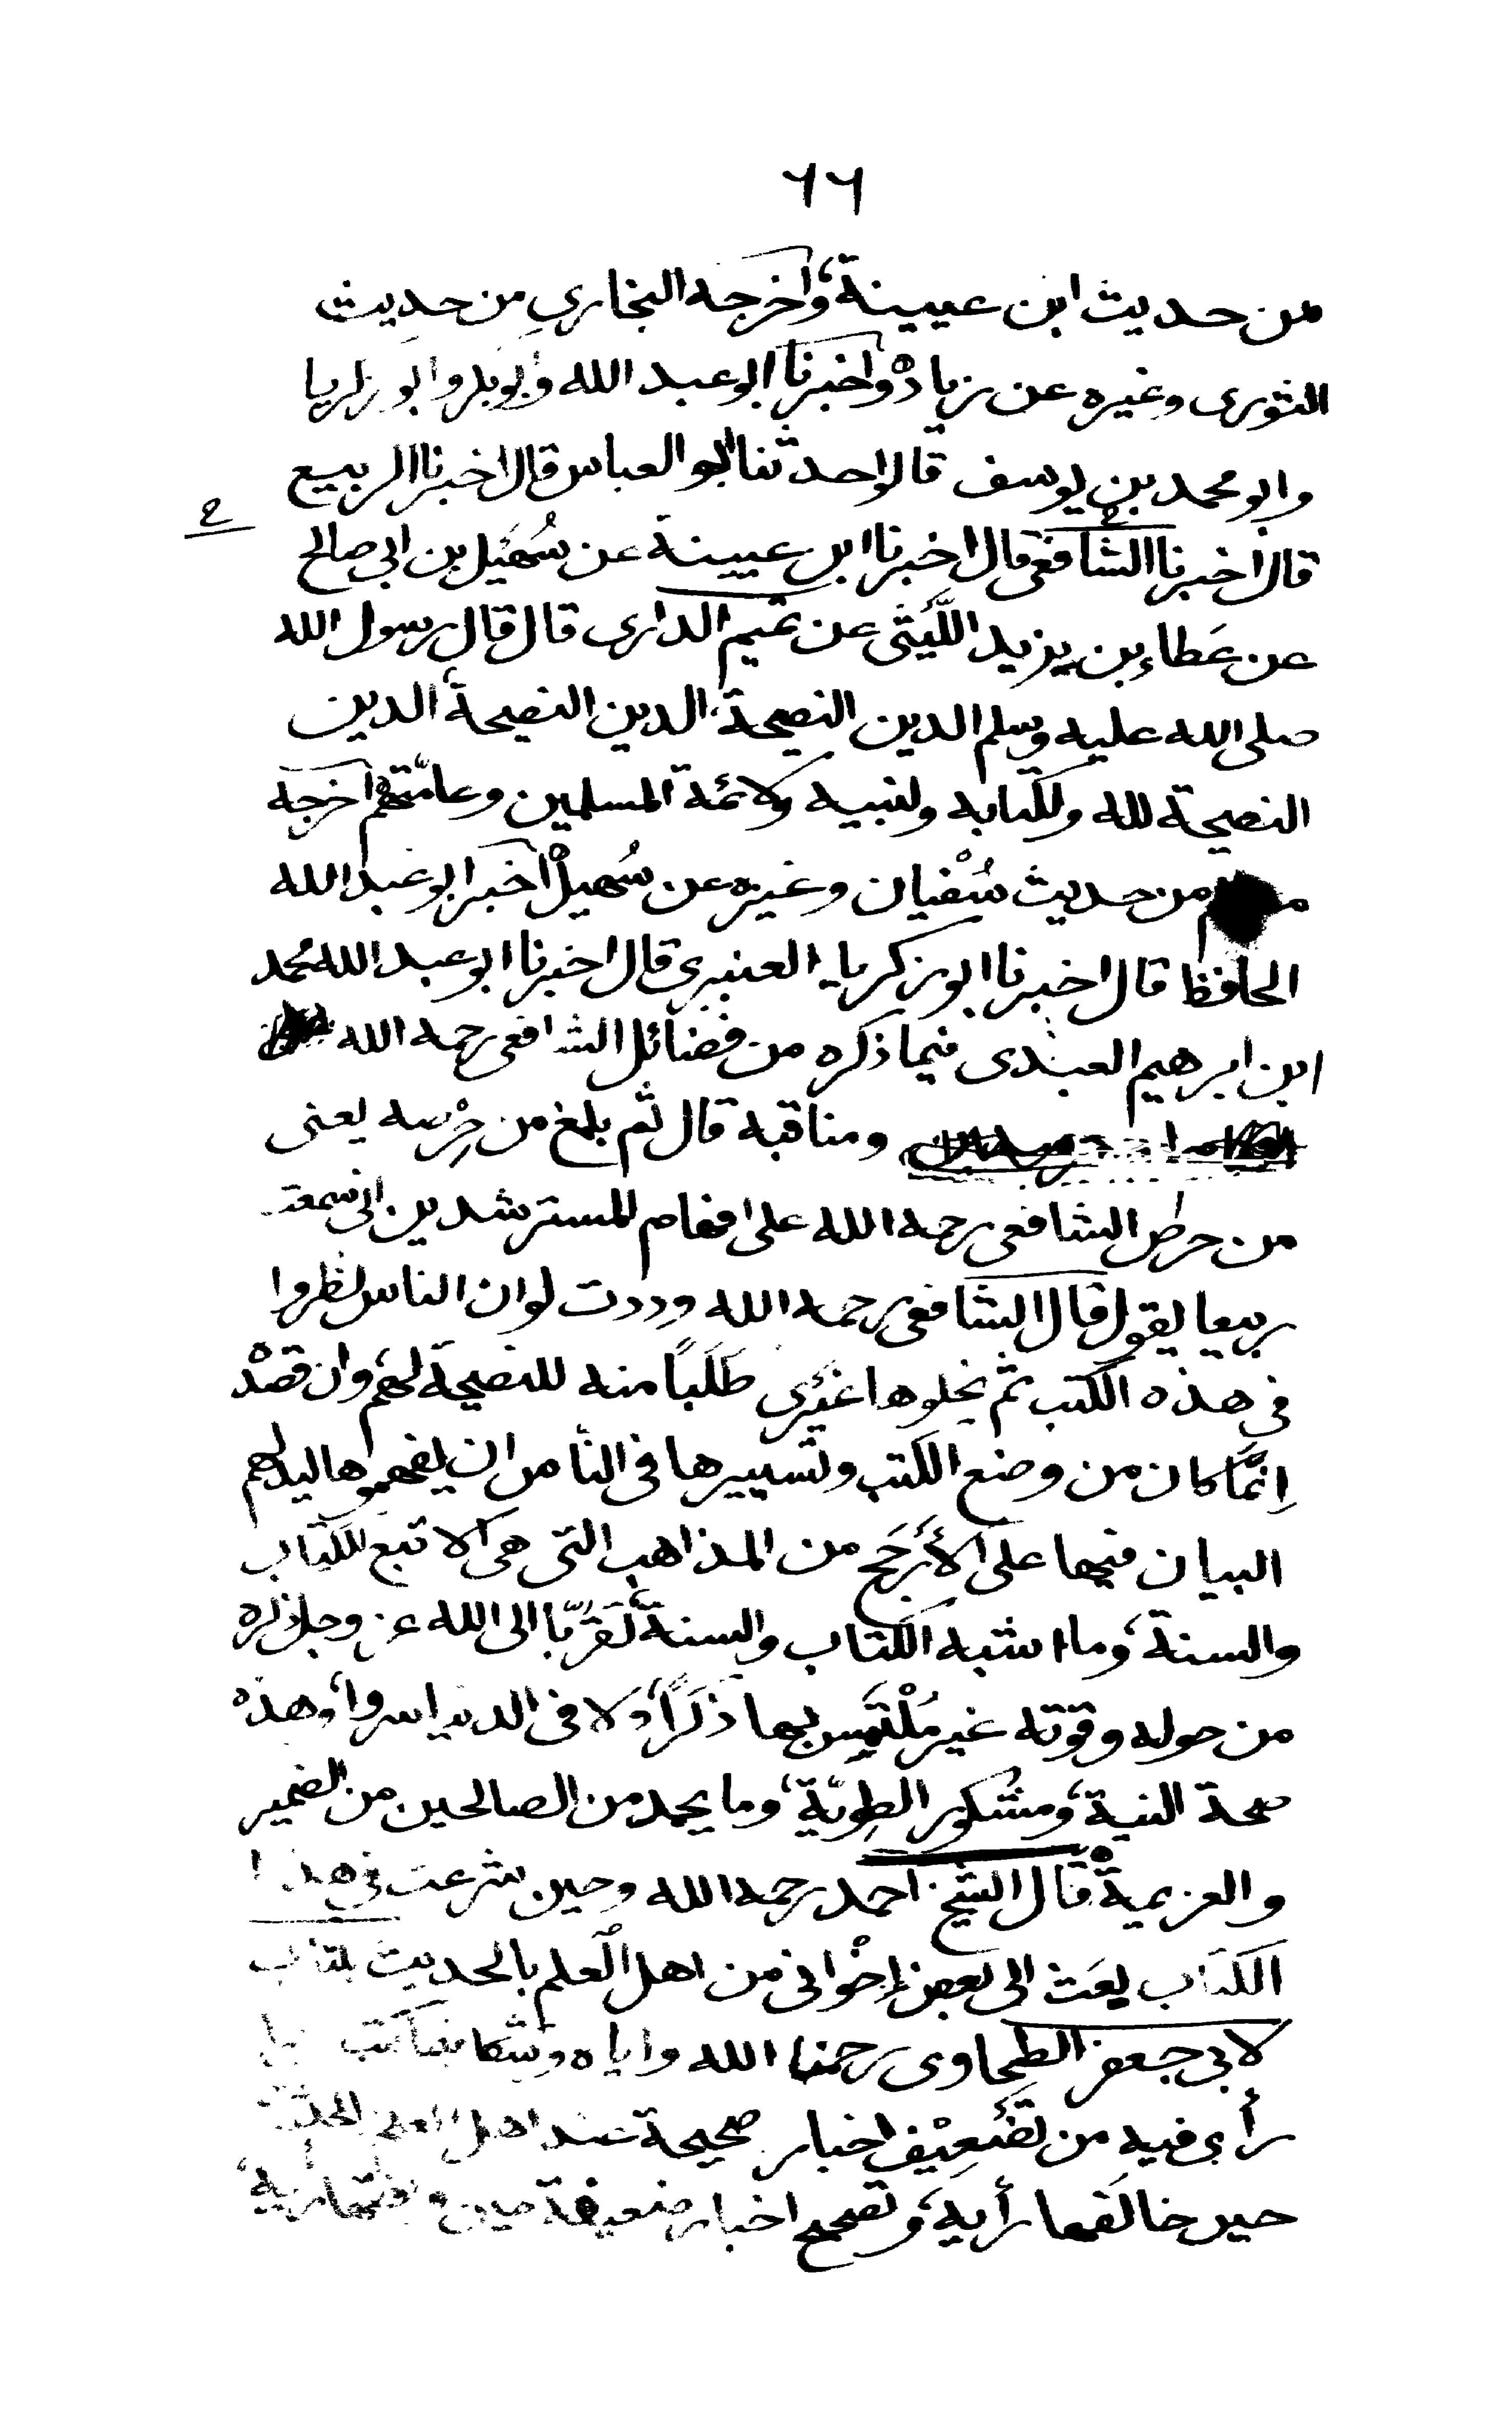 ٦٦
من حديث ابن عيينة، واخرجه البخاري من حديث
الثورى وغيره عن زياد ْ واخبرنا ابو عبد الله وابو بكر وابو زكريا
وابو محمد بن يوسف قالوا حدثنا ابو العباس قال اخبرنا الربيع
قال اخبرنا الشافعى قال اخبرنا ابن عيينة عن سُهَيل بن ابى صالح
عن عَطاء بن يزيد اللَّيْثى عن تميم الدارى قال قال رسول الله
صلى الله عليه وسلم الدين النصيحة، الدين النصيحة، الدين
النصيحة لله ولكتابه ولنبيه ولائمة المسلمين وعامّتهم اخرجه
من حديث سُفْيان وغيره عن سُهيلْ اخبرنا ابو عبد الله
الحافظ قال اخبرنا ابو زكرياء العنبرى قال اخبرنا ابو عبد الله محمد
ابن ابرهيم العبدى فيما ذكره من فضائل الشافعى رحمه الله
ومناقبه قال ثم بلغ من حِرْصه يعنى
من حرص الشافعى رحمه الله على افهام المسترشدين انى سمعت
ربيعا يقول قال الشافعى رحمه الله وددت لو ان الناس نظروا
فى هذه الكتب ثم نحلوها غَيْرى طَلَبًا منه للنصيحة لهُم وان قصْدْه
اِنَّما كان من وضع الكتب وتسييرها فى الناس ان يفهموها ليدلهم
البيان فيها على الأَرْجَح من المذاهب التى هى الا تبع للكتاب
والسنة، وما اشبه الكتاب والسنة، تَقَرُّبًا الى الله عز وجل ذكره
من حوله وقوّته غير مُلْتَمِس بها ذكرًا، ولا فى الدنيا شرفا، وهذه
صحة النية، ومشكور الطوِيّة، وما يحمد من الصالحين من الضمير
والعزيمة ْ قال الشيخ احمد رحمه الله وحين شرعت فى هذا
الكتاب بعَث الى بعض اِخْوانى من اهل العلم بالحديث بكتاب
لابى جعفر الطحاوى رحمنا الله واياه وشكا فيما كتب
رأى فيه من تَضْعِيْف اخبار صحيحة عند اهل العلم
حين خالفها رأيه، وتصحيح اخبار ضعيفة حين وافقها رأيه،